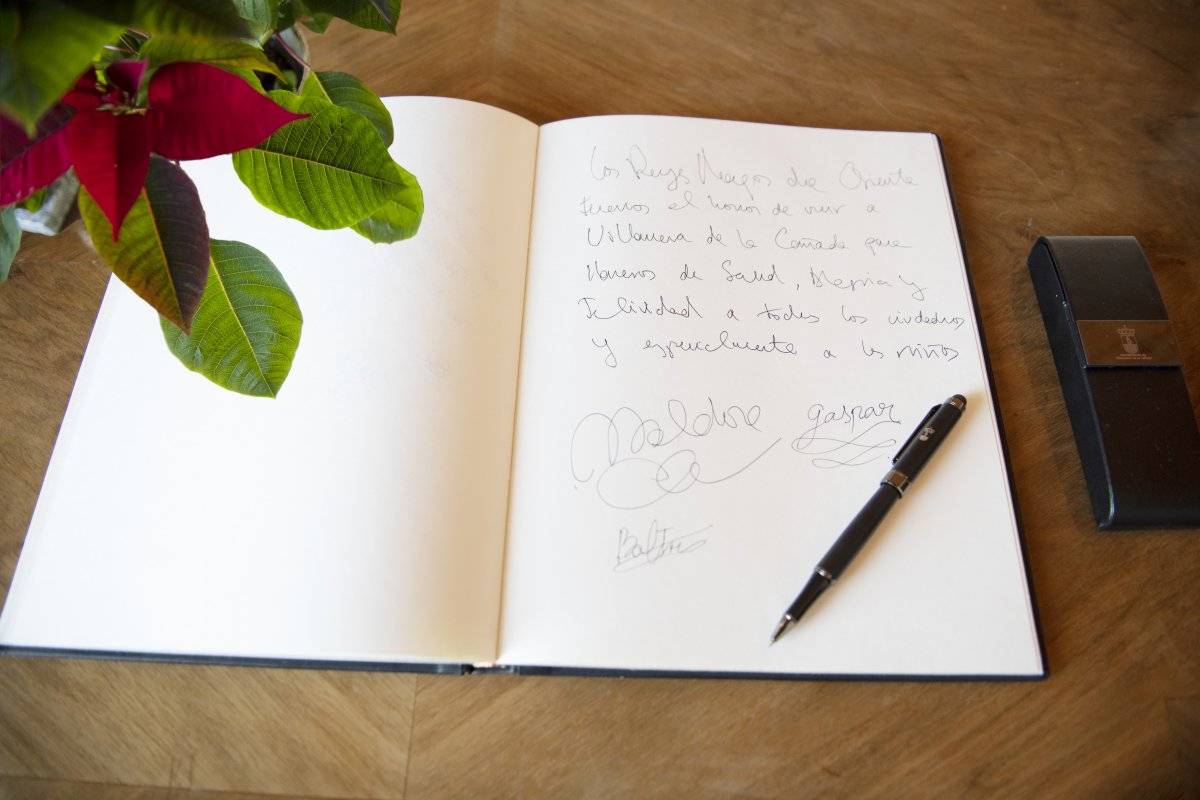 Los Reyes Magos de Oriente
tuvimos el honor de venir a
Villanueva de la Cañada para
llenaros de Salud, Alegria y
Felicidad a todos los ciudadanos
y especialmente a los niños
Melchor gaspar